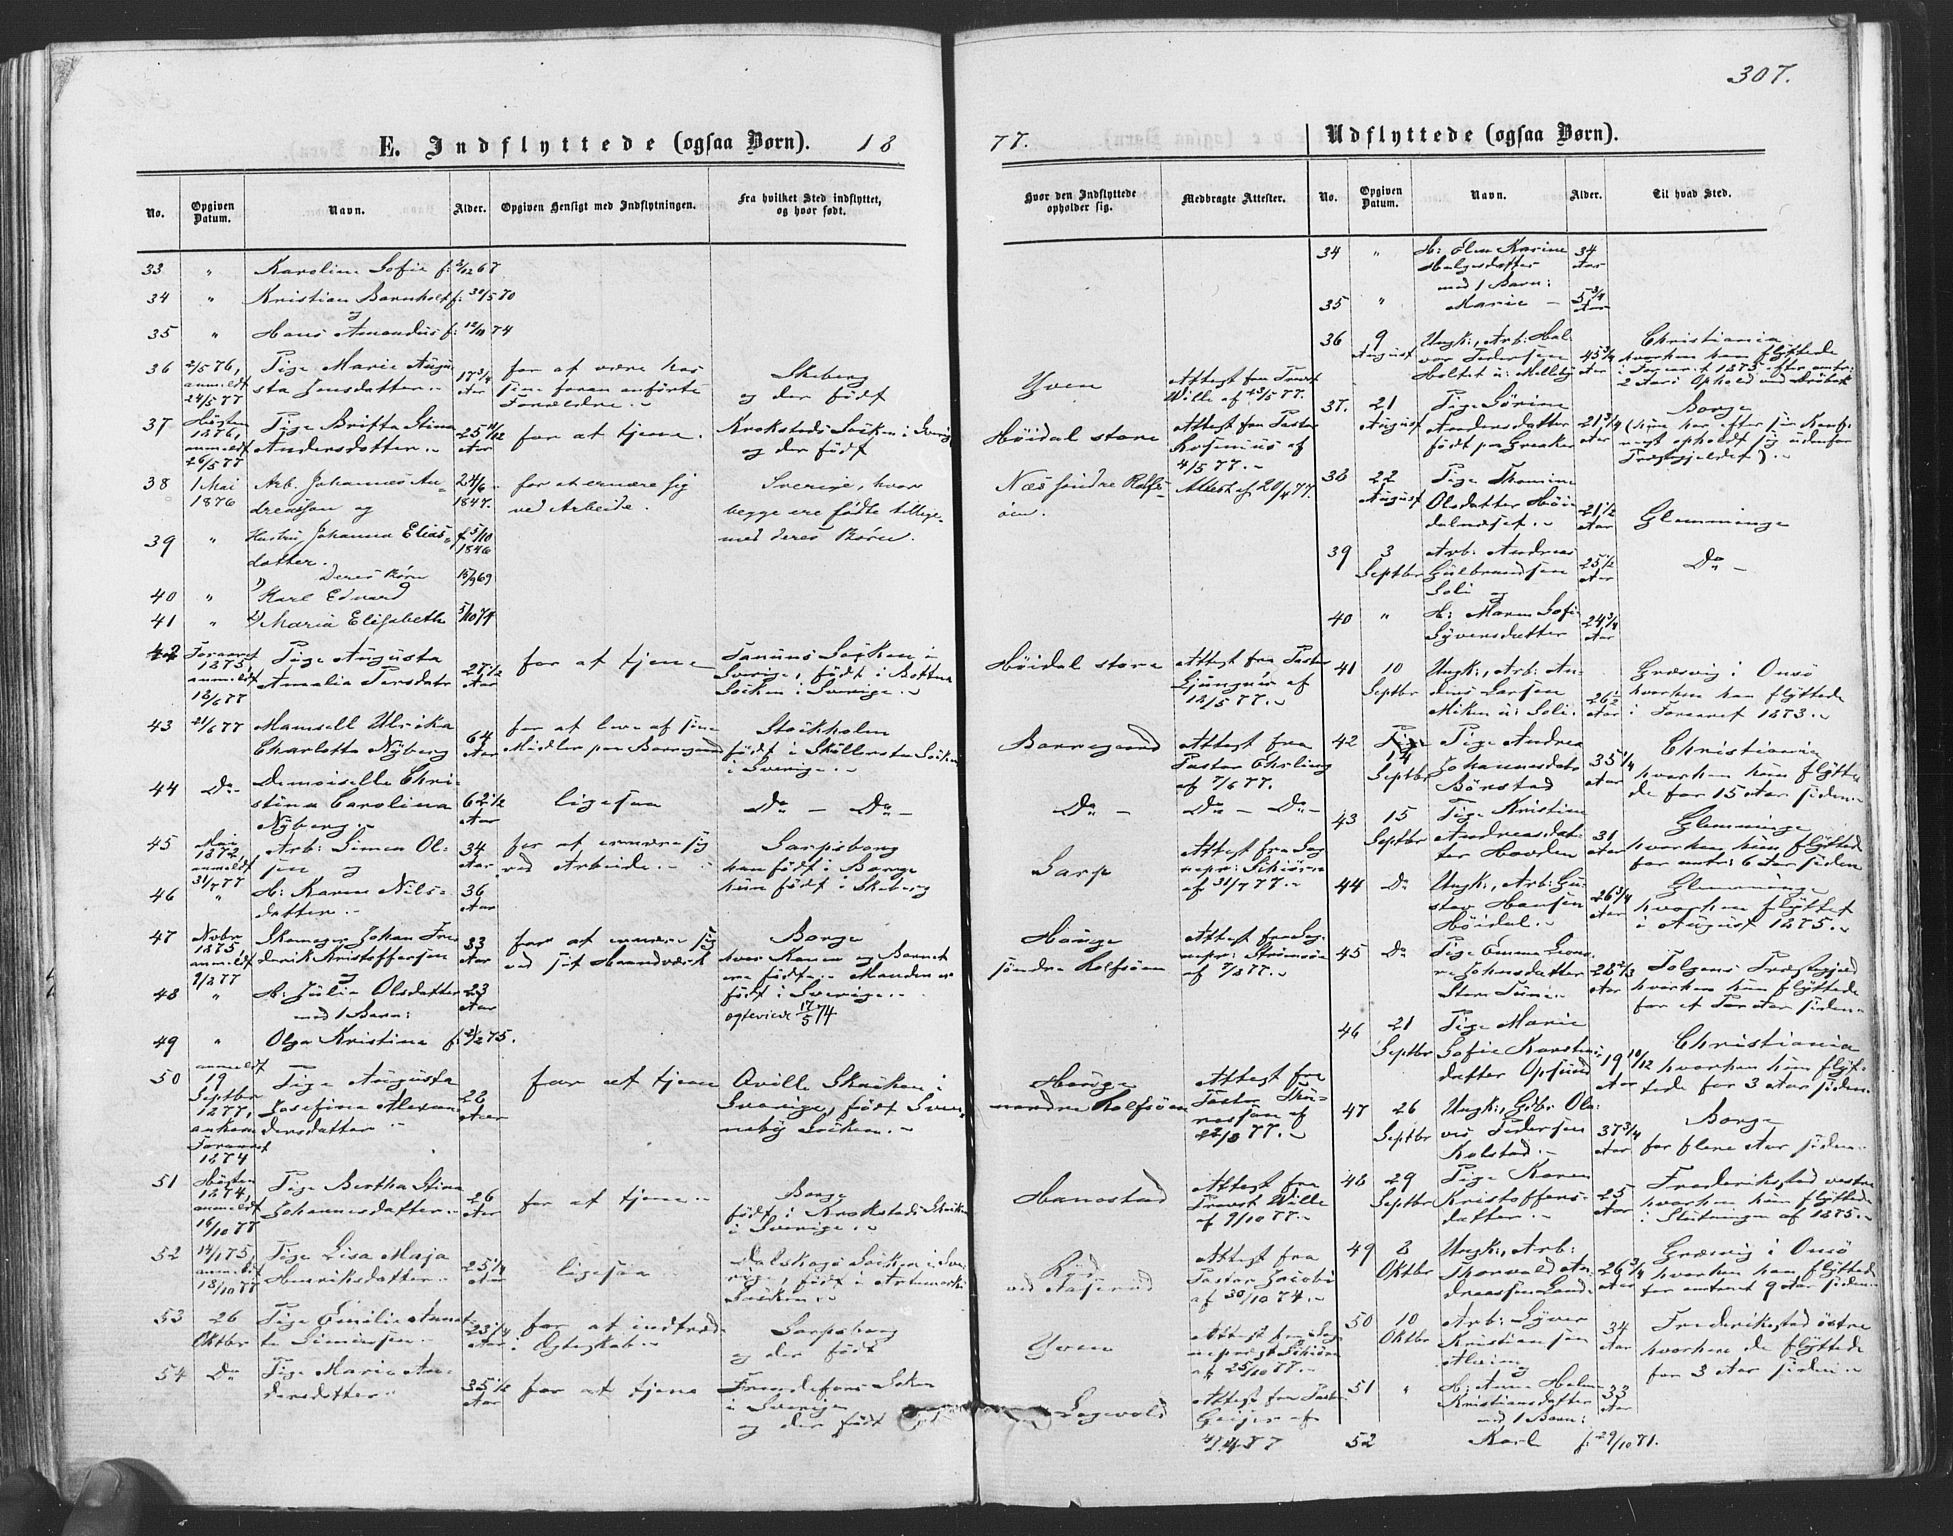 307.
E. Indflyttede (ogsaa Børn). 18
77. Udflyttede (ogsaa Børn).
No. Opgiven Datum. Navn. Alder. Opgiven Hensigt med Indflytningen. Fra hvilket Sted indflyttet, og hvor født.
Hvor den Indflyttede opholder sig. Medbragte Attester. No. Opgiven Datum. Navn. Alder. Til hvad Sted.
33 " Karoline Sofie f. 2/12 67
34 " Kristian Barnholdt f. 30/5 70
og
35 " Hans Amandus f. 12/11 74
36 2/5 76, Pige Marie Augu- 17 3/4 for at være hos Skeberg
anmeldt sta Jensdatter.- Aar sine foran anførte og der født
24/5 77 Forældre.-
Yven Attest fra Provst
Wille af 23/5 77.
37 Høsten Pige Britta Stina 25 11/12 for at tjene. Krokstads Socken i Sverig
1876, Andersdatter.- Aar og der født
anmeldt
26/5 77
Høidal store Attest fra Pastor
Rosenius af
4/5 77.-
38 1 Mai Arb. Johannes An- 24/6 for at ernære sig Sverige, hvor
1876 dreasson og 1847. ved Arbeide. begge ere fødte tillige-
39 " Hustru Johanna Elias- f. 5/10 med deres Børn.
datter. 1846
Deres Børn 15/9 69
40 " 1) Karl Edvard
41 " 2) Maria Elisabeth 5/10 74
Næs søndre Rolfs- Attest af 20/4 77.
øen.
42 Foraaret Pige Augusta 27 1/2 for at tjene Tanums Socken i
1875, Amalia Persdatr Aar Sverige, født i Bottna
anmeldt Socken i Sverige.-
18/6 77
Høidal store Attest fra Pastor
Ljungner af
12/5 77.-
43 21/6 77 Mamsell Ulrika 64 for at leve af sine Stockholm
Charlotta Nyberg Aar Midler paa Borregaard født i Skillersta Socken
i Sverige.-
Borregaard Attest fra
Pastor Ehrling
af 7/6 77.
44 Do- Demoiselle Chri- 62 1/2 ligesaa Do - Do -
stina Carolina Aar
Nyberg.-
Do - Do - Do -
45 Mai Arb: Simen Ol- 34 for at ernære sig Sarpsborg
1872 sen og Aar ved Arbeide.- han født i Borge
anmeldt hun født i Skeberg
31/7 77
46 " H: Karen Nils- 36
datter.- Aar
Sarp Attest fra Sog-
nepr: Schiørn
af 31/7 77.-
47 Novbr Skomager Johan Fre- 33 for at ernære sig Borge
1875, derik Kristoffersen Aar ved sit Haandværk hvor Konen og Barnet
anmeldt og ere født.- Manden er
7/8 77 født i Sverige.-
48 " H: Julie Olsdatter 23 ægteviede 17/5 74
med 1 Barn: Aar
49 " Olga Kristine f. 21/2 75.
Hauge Attest fra Sog-
søndre Rolfsøen nepr: Strømsøe
af 7/8 77.-
anmeldt
50 19 Pige Augusta 28 for at tjene Qville Socken i
Septbr Josefina Alexan- Aar Sverige, født Sven-
1877, dersdatter.- neby Socken.-
ankom
Foraaret
1874
Hauge Attest fra
nordre Rolfsøen Pastor Thu-
nesson af
22/8 77.-
51 Høsten Pige Bertha Stina 26 for at tjene.- Borge
1874, Johannesdatter.- Aar født i Krokstads Socken
anmeldt i Sverige.-
16/10 77
Hanestad Attest fra
Provst Wille
af 9/10 77.-
52 14/1 75, Pige Lisa Maja 25 1/4 ligesaa Dalskogs Socken i Sve-
anmeldt Henriksdatter.- Aar rige, født i Artemark
18/10 77 Socken.-
Attest fra
Pastor Jacobi
af 30/10 74.-
53 26 Pige Emilie Annet- 23 1/4 for at indtræde Sarpsborg
Oktbr te Simensen.- Aar i Ægteskab.- og der født
Yven Attest fra Sog-
nepræst Schiørn
af 25/10 77.-
54 Do Pige Maria An- 35 1/2 for at tjene Sokn
dersdatter.- Aar i Sverige
og der født
Attest fra Pastor
Geijer af
4/4 77
34 " H: Elen Karine 34
Helgesdatter Aar
med 1 Barn:
35 " Marie - 5 3/4
Aar
36 9 Ungk:, Arb: Hal- 45 3/4 Christiania
August vor Pedersen Aar hvorhen han flyttede
Holtet u: Melleby i Foraaret 1875 efter omtr:
2 Aars Ophold ved Drøbak
37. 21 Pige Sørine 21 3/4 Borge
August Andersdatter Aar (hun har efter sin Konf:
født paa Greaker nest opholdt sig udenfor
Præstegjeldet).-
38 22 Pige Thomine 21 1/2 Glemminge
August Olsdatter Høi- Aar
dalnæset.-
39 3 Arb: Andreas 25 1/2 Do -
Septbr Gulbrandsen Aar
Soli og
40 " H: Maren Sofie 24 3/4
Syversdatter Aar
41 10 Ungk:, Arb: An- 26 1/2 Græsvig i Onsø
Septbr dreas Larsen Aar hvorhen han flyttede
Miken u: Soli. i Foraaret 1873.-
42 14 Pige Andrea 35 1/4 Christiania
Septbr Johannesdatr Aar hvorhen hun flytte-
Børstad de for 15 Aar siden.
43 15 Pige Kristine 31 Glemminge
Septbr Andreasdat- Aar hvorhen hun flyttede
ter Hovden for omtr: 6 Aar siden
44 Do Ungk:, Arb: Gu- 26 3/4 Glemminge
stav Hansen Aar hvorhen flyttet
Høidal.- i August 1875.-
45 Do Pige Emma Leono- 28 2/3 Tolgens Præstegjeld
ra Johnsdatter Aar hvorhen hun flyttede
Store Tune.- for et Par Aar siden
46 21 Pige Marie 19 10/12 Christiania
Septbr Sofie Karstens- Aar hvorhen hun flyt-
datter Opsund tede for 3 Aar siden.
47 26 Ungk:, Gbr: Ole- 37 3/4 Borge
Septbr vis Pedersen Aar for flere Aar siden.
Kolstad.-
48 29 Pige Karen 25 Frederikstad vestre
Septbr Kristoffers- Aar hvorhen hun flyttede
datter.- i Slutningen af 1875.-
49 8 Ungk:, Arb: 26 3/4 Græsvig i Onsø
Oktbr Thorvald An- Aar hvorhen han flyttede
dreassen Lande for omtrent 9 Aar siden
50 10 Arb: Syver 34 Frederikstad østre
Oktbr Kristiansen Aar hvorhen de flyttede
og for 3 Aar siden.-
51 " H: Anne Helene 33
Kristiansdatter Aar
med 1 Barn:
52 Karl f. 29/10 71.